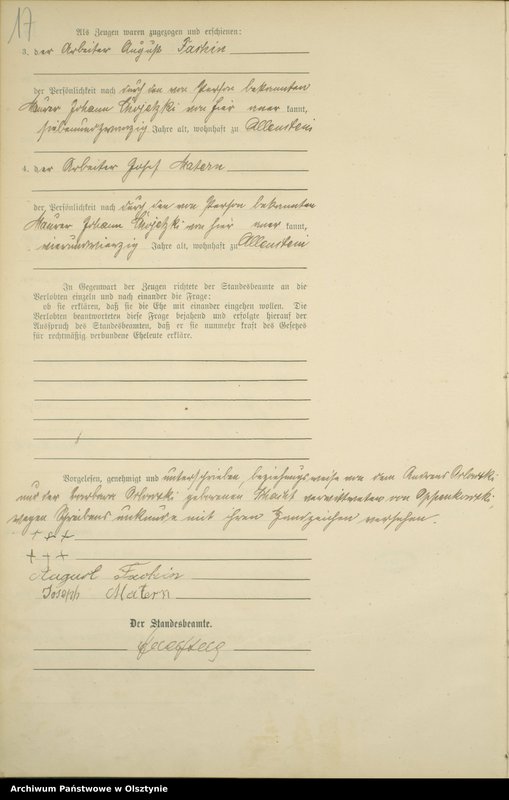 17
Als Zeugen waren zugezogen und erschienen:
3. der Arbeiter August
der Persönlichkeit nach durch den von Person bekannten
Maurer Johann von hier aner kannt,
siebenundzwanzig Jahre alt, wohnhaft zu Allenstein
4. der Arbeiter Josef Matern
der Persönlichkeit nach durch den von Person bekannten
Maurer Johann von hier aner kannt,
vierundvierzig Jahre alt, wohnhaft zu Allenstein
In Gegenwart der Zeugen richtete der Standesbeamte an die
Verlobten einzeln und nach einander die Frage:
ob sie erklären, daß sie die Ehe mit einander eingehen wollen. Die
Verlobten beantworteten diese Frage bejahend und erfolgte hierauf der
Ausspruch des Standesbeamten, daß er sie nunmehr kraft des Gesetzes
für rechtmäßig verbundene Eheleute erkläre.
Vorgelesen, genehmigt und unterschrieben, beziehungsweise von dem Andreas Orlowski
und der Barbara Orlowski geborenen verwittweten von
wegen Schreibens unkunde mit ihren Handzeichen versehen.
+ + +
+ + +
August
Joseph Matern
Der Standesbeamte.
Archiwum Państwowe w Olsztynie